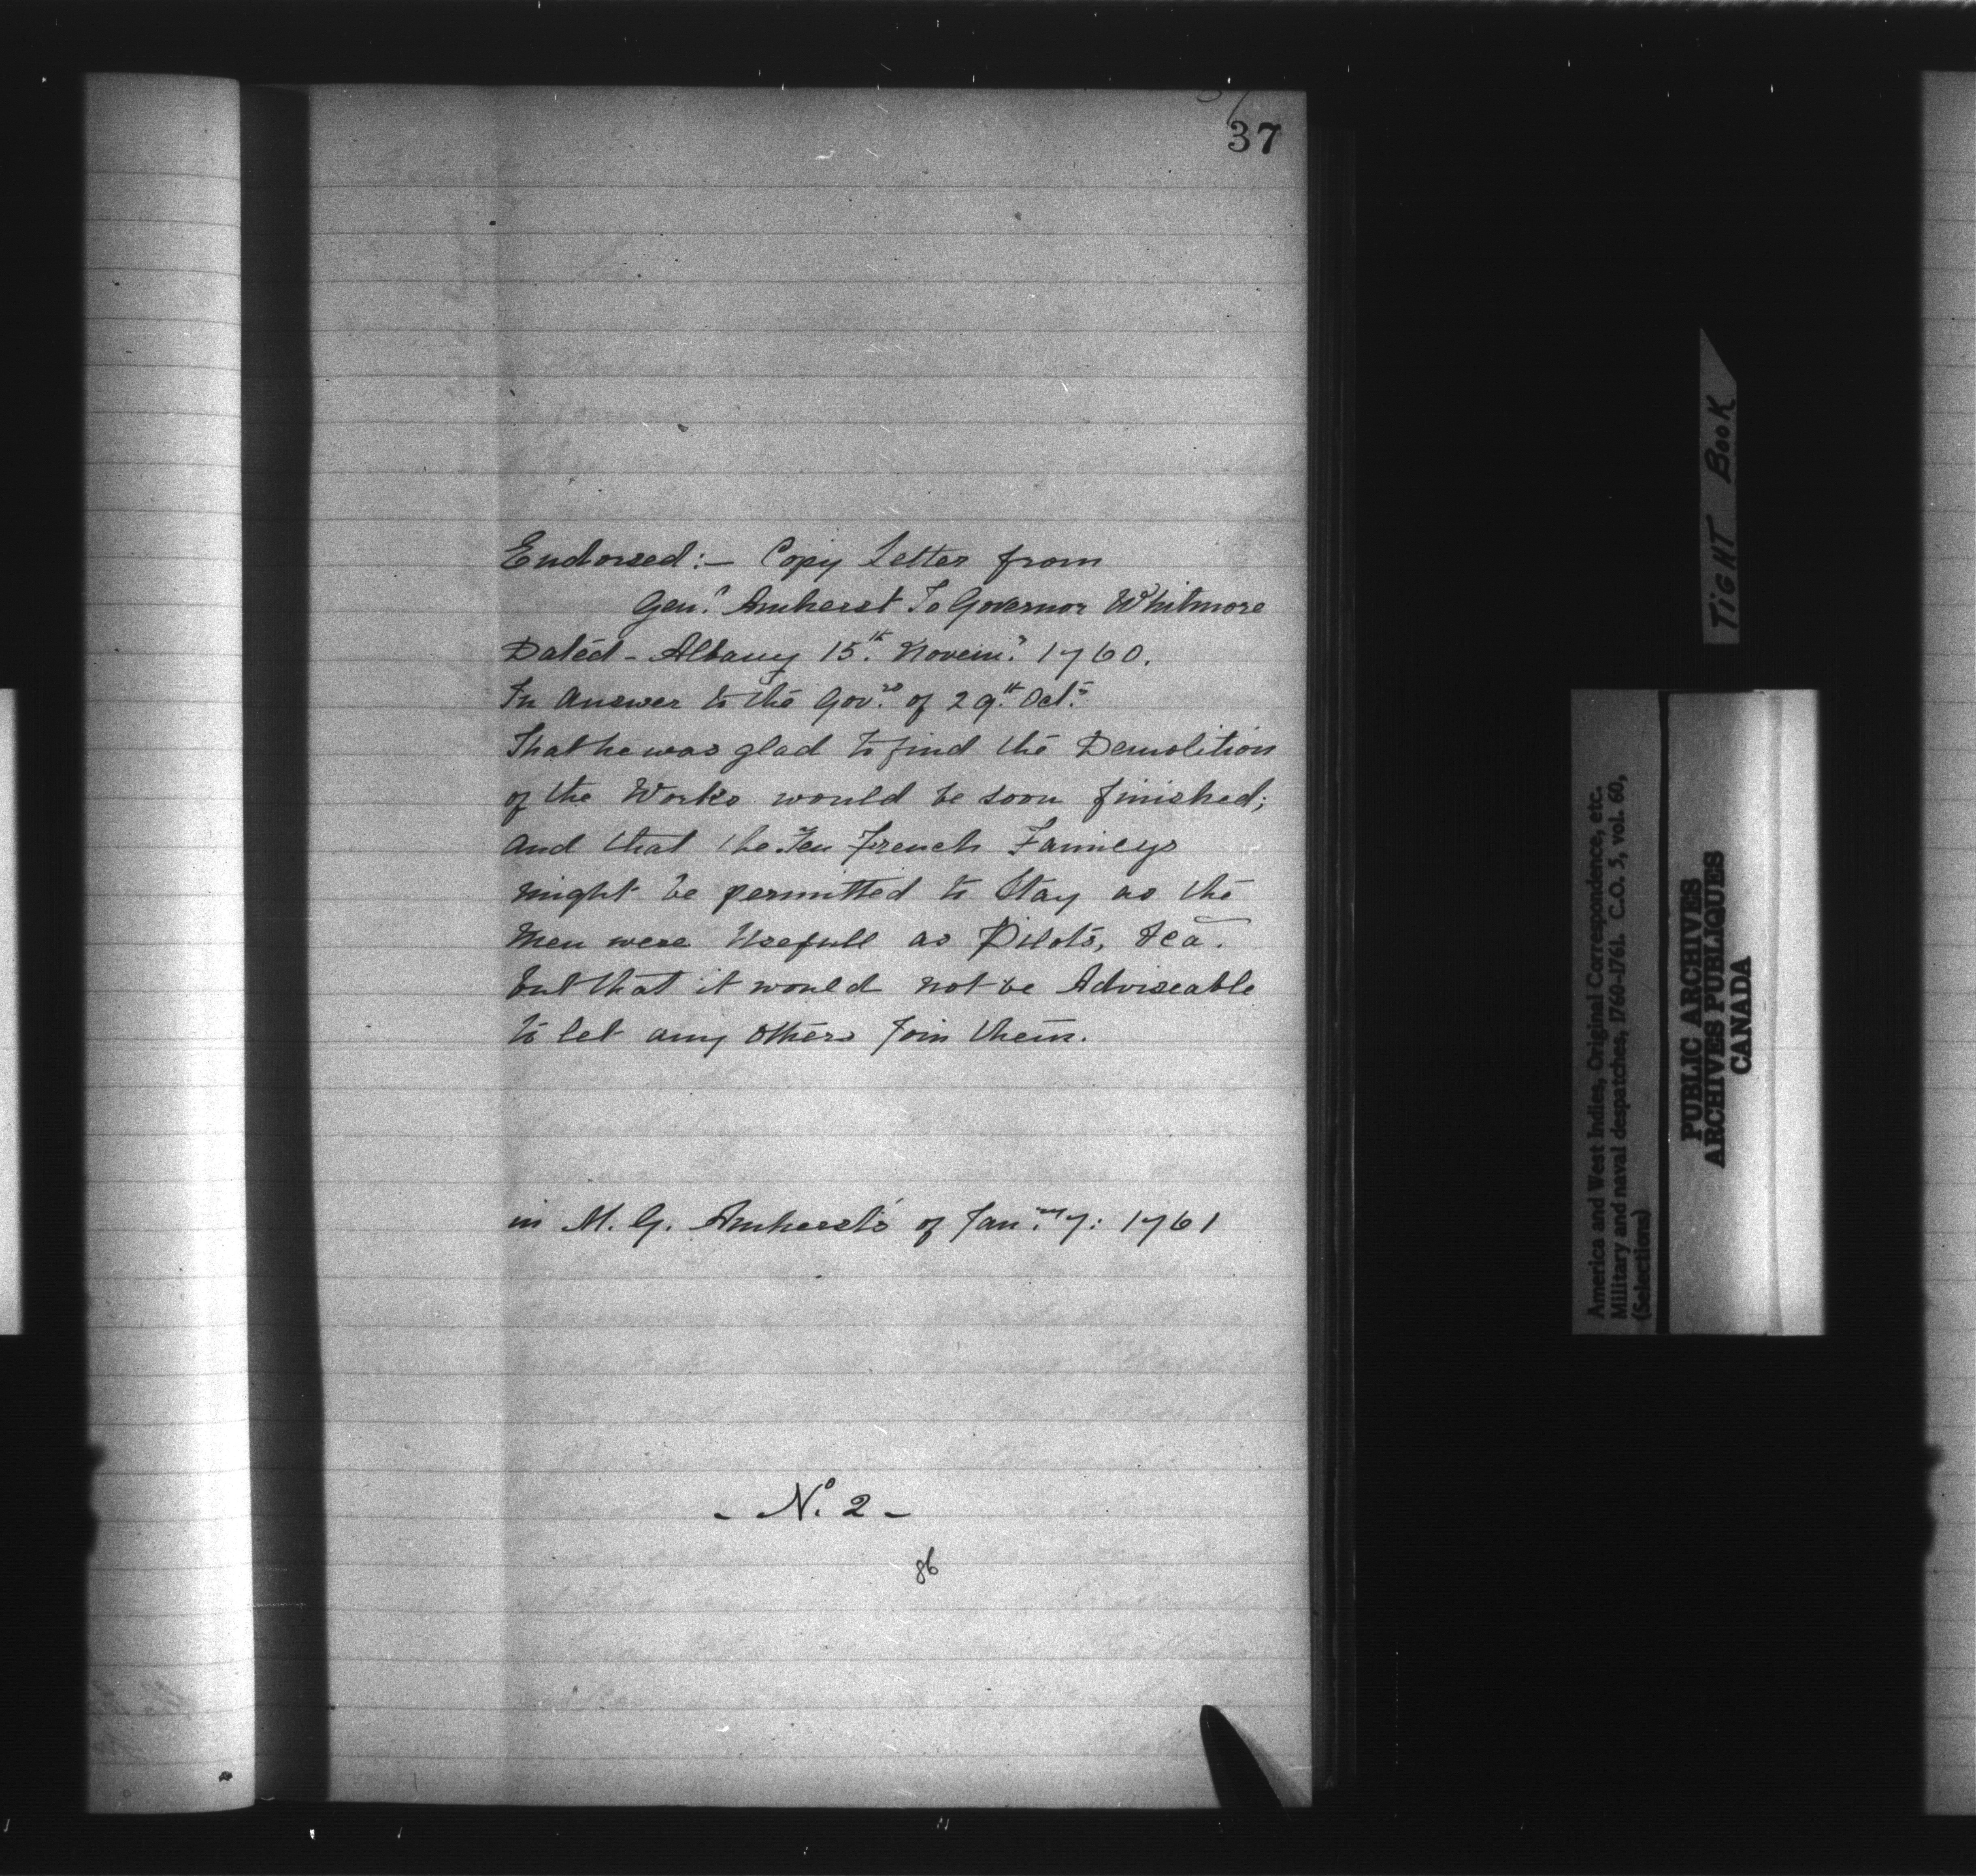 37
Endorsed:— Copy Letter from
Gen.l Amherst To Governor Whitmore
Dated - Albany 15.th Novem.r 1760.
In answer to the Gov.rs of 29.th Oct.r
That he was glad to find the Demolition
of the Works would be soon finished;
and that the Ten French Familys
might be permitted to Stay as the
Men were Usefull as Pilots, &ca.
but that it would not be Adviseable
to let any others Join them.
in M. G. Amherst's of Jan.ry 7: 1761
- No. 2 -
86
TIGHT BOOK
America and West Indies, Original Correspondence, etc.
Military and naval despatches, 1760-1761. C.O. 5, vol. 60,
(Selections)
PUBLIC ARCHIVES
ARCHIVES PUBLIQUES
CANADA